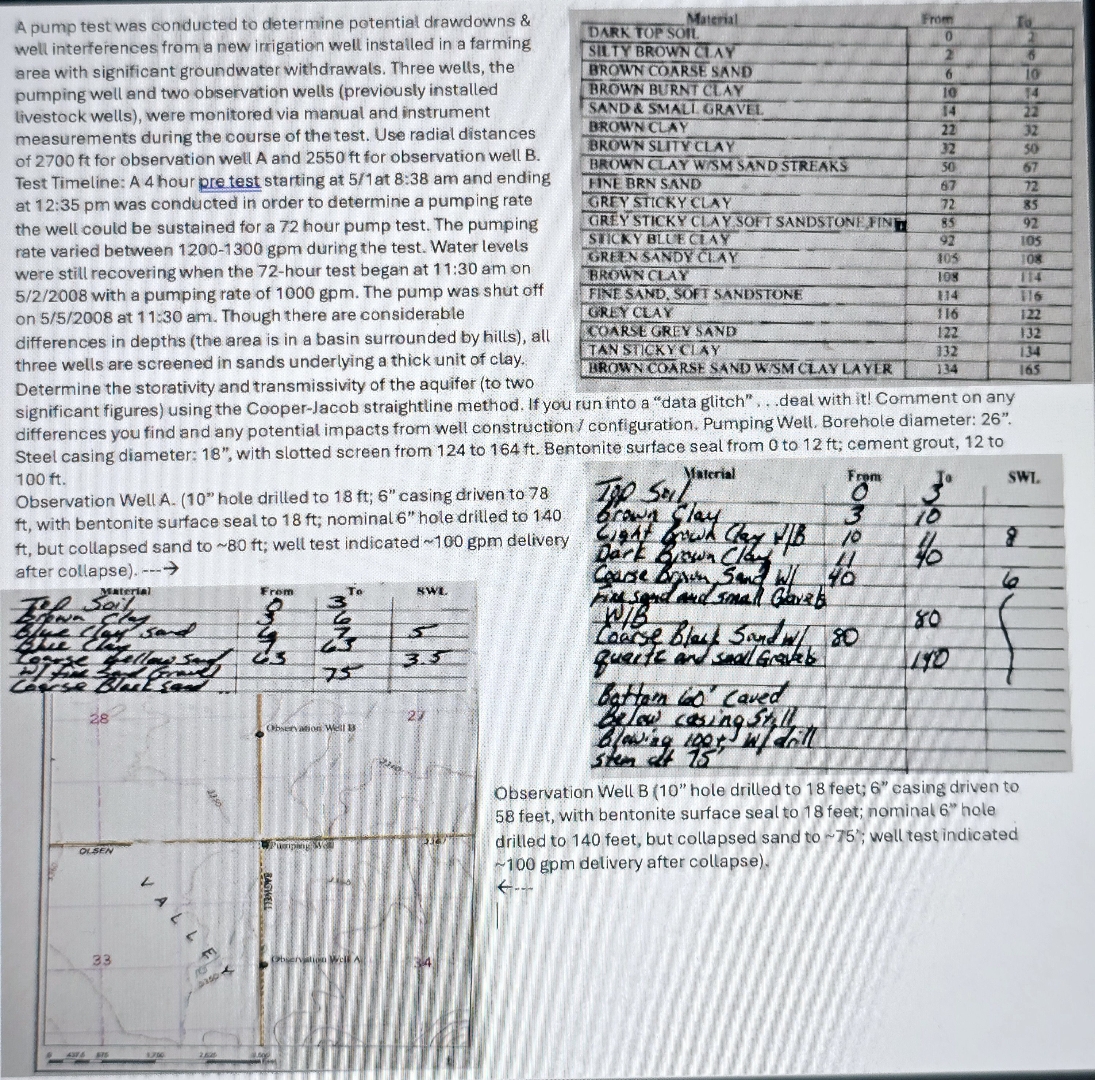 A pump test was conducted to determine potential drawdowns &
well interferences from a new irrigation well installed in a farming
area with significant groundwater withdrawals. Three wells, the
pumping well and two observation wells (previously installed
livestock wells), were monitored via manual and instrument
measurements during the course of the test. Use radial distances
of 2700 ft for observation well A and 2550 ft for observation well B.
Test Timeline: A 4 hour pre test starting at 5/1at 8:38 am and ending
at 12:35 pm was conducted in order to determine a pumping rate
the well could be sustained for a 72 hour pump test. The pumping
rate varied between 1200-1300 gpm during the test. Water levels
were still recovering when the 72-hour test began at 11:30 am on
5/2/2008 with a pumping rate of 1000 gpm. The pump was shut off
on 5/5/2008 at 11:30 am. Though there are considerable
differences in depths (the area is in a basin surrounded by hills), all
three wells are screened in sands underlying a thick unit of clay.
Determine the storativity and transmissivity of the aquifer (to two
significant figures) using the Cooper-Jacob straightline method. If you run into a "data glitch" . . .deal with it! Comment on any
differences you find and any potential impacts from well construction / configuration. Pumping Well. Borehole diameter: 26".
Steel casing diameter: 18", with slotted screen from 124 to 164 ft. Bentonite surface seal from 0 to 12 ft; cement grout, 12 to
100 ft.
Material From To
DARK TOP SOIL 0 2
SILTY BROWN CLAY 2 6
BROWN COARSE SAND 6 10
BROWN BURNT CLAY 10 14
SAND & SMALL GRAVEL 14 22
BROWN CLAY 22 32
BROWN SLITY CLAY 32 50
BROWN CLAY W/SM SAND STREAKS 50 67
FINE BRN SAND 67 72
GREY STICKY CLAY 72 85
GREY STICKY CLAY,SOFT SANDSTONE,FIN 85 92
STICKY BLUE CLAY 92 105
GREEN SANDY CLAY 105 108
BROWN CLAY 108 114
FINE SAND, SOFT SANDSTONE 114 116
GREY CLAY 116 122
COARSE GREY SAND 122 132
TAN STICKY CLAY 132 134
BROWN COARSE SAND W/SM CLAY LAYER 134 165
Observation Well A. (10" hole drilled to 18 ft; 6" casing driven to 78
ft, with bentonite surface seal to 18 ft; nominal 6" hole drilled to 140
ft, but collapsed sand to ~80 ft; well test indicated ~100 gpm delivery
after collapse). --->
Material From To SWL
Top Soil 0 3
Brown Clay 3 10
Light Brown Clay W/B 10 11 8
Dark Brown Clay 11 40
Coarse Brown Sand W/ 40 6
fine sand and small Gravels
W/B 80
Coarse Black Sand w/ 80
quartz and small Gravels 140
Bottom 60' caved
Below casing Still
Blowing 100+ w/ drill
stem at 75'
Material From To SWL
Top Soil 0 3
Brown Clay 3 6
Blue Clay sand 6 7 5
Blue Clay 7 63
Coarse yellow Sand 63 3.5
w/ fine Sand Gravel 75
Coarse Black sand
Observation Well B (10" hole drilled to 18 feet; 6" casing driven to
58 feet, with bentonite surface seal to 18 feet; nominal 6" hole
drilled to 140 feet, but collapsed sand to ~75'; well test indicated
~100 gpm delivery after collapse).
<---
28
27
Observation Well B
OLSEN
Pumping Well
BAGWELL
VALLEY
33
Observation Well A
34